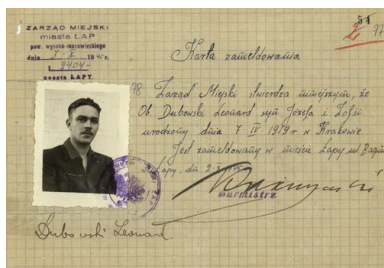 ZARZĄD MIEJSKI
miasta ŁAP
pow. wysoko-mazowieckiego
dnia
9404
poczta ŁAPY.
54
97
Karta zameldowania
Zarząd Miejski stwierdza niniejszym, że
Ob. Dubowski Leonard syn Józefa i Zofii
urodzony dnia 7 IV 1919 r. w Krakowie
Jest zameldowany w mieście Łapy ul.
Łapy, dn.
Burmistrz
Dubowski Leonard.